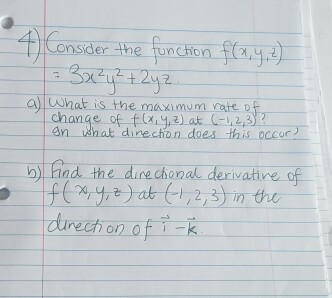 4) Consider the function f(x,y,z)
= 3x²y² + 2yz.
a) What is the maximum rate of
change of f(x,y,z) at (-1,2,3)?
In what direction does this occur?
b) Find the directional derivative of
f(x,y,z) at (-1,2,3) in the
direction of i⃗ - k⃗.